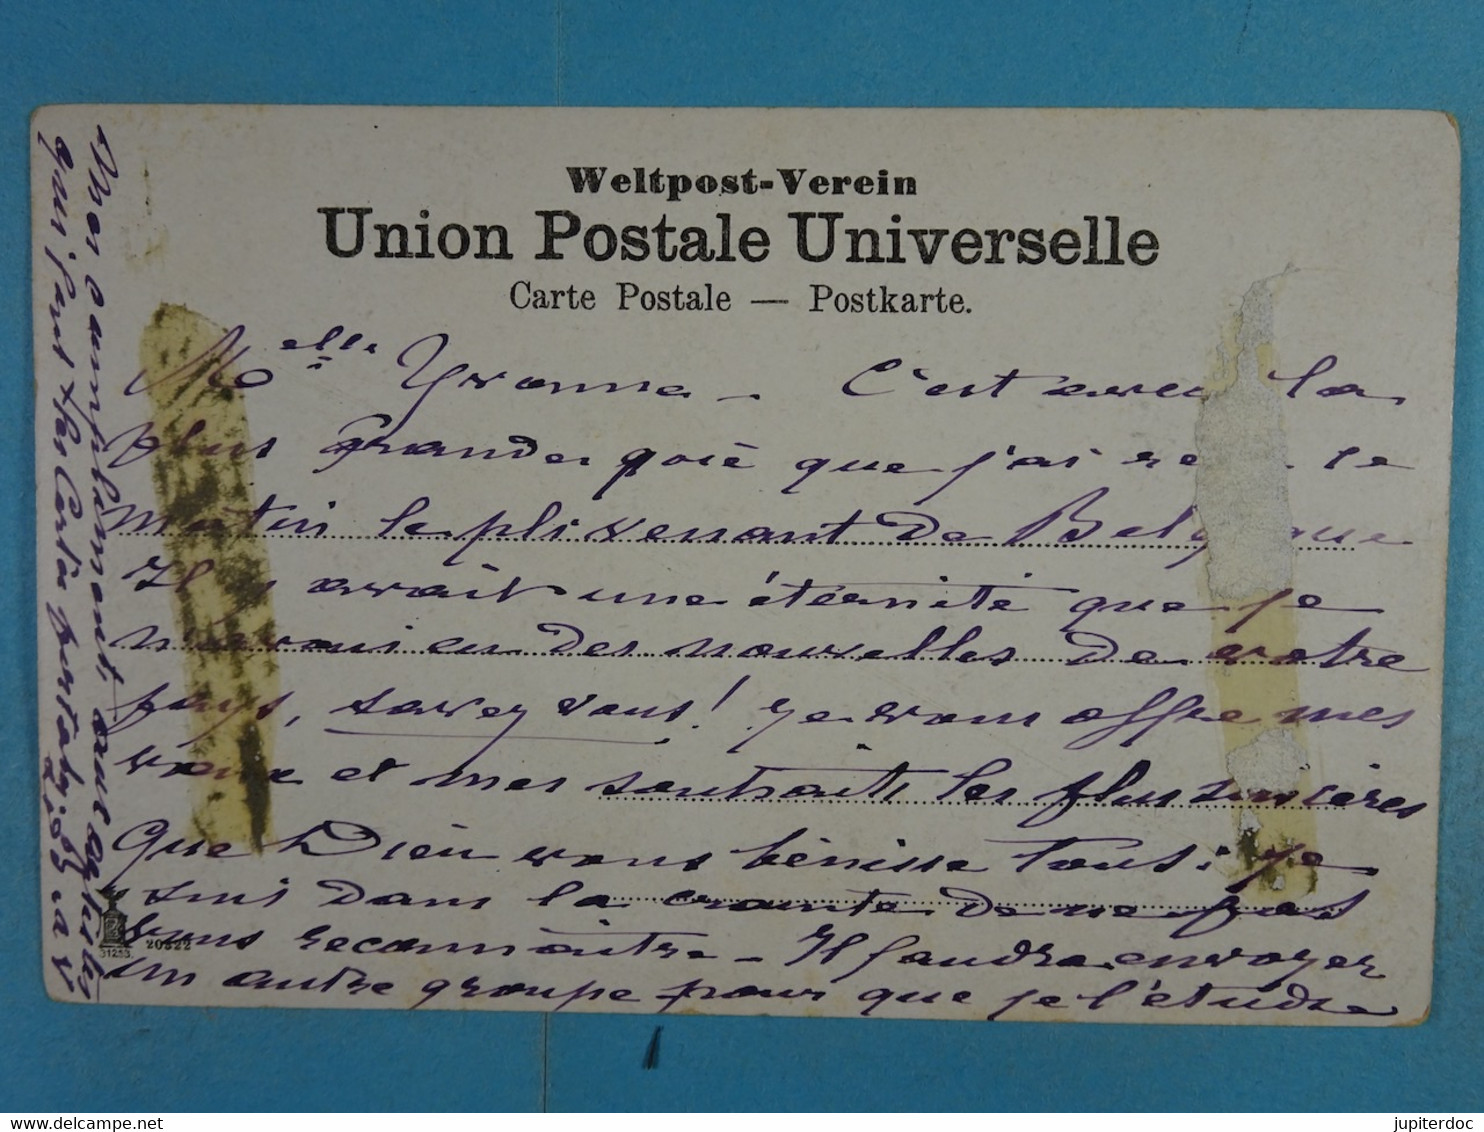 Weltpost-Verein
Union Postale Universelle
Carte Postale — Postkarte.
Melle Yvonne - C'est avec la
plus grande joie que j'ai reçu ce
matin le pli venant de Belgique
Il y avait une éternité que je
n'avais eu des nouvelles de votre
pays, savez vous! Je vous offre mes
vœux et mes souhaits les plus sincères
Que Dieu vous bénisse tous! je
suis dans la crainte de ne pas
vous reconnaître - Il faudra envoyer
un autre groupe pour que je l'étudie
Mes compliments aux artistes
qui font les Cartes
20822
31253.
jupiterdoc